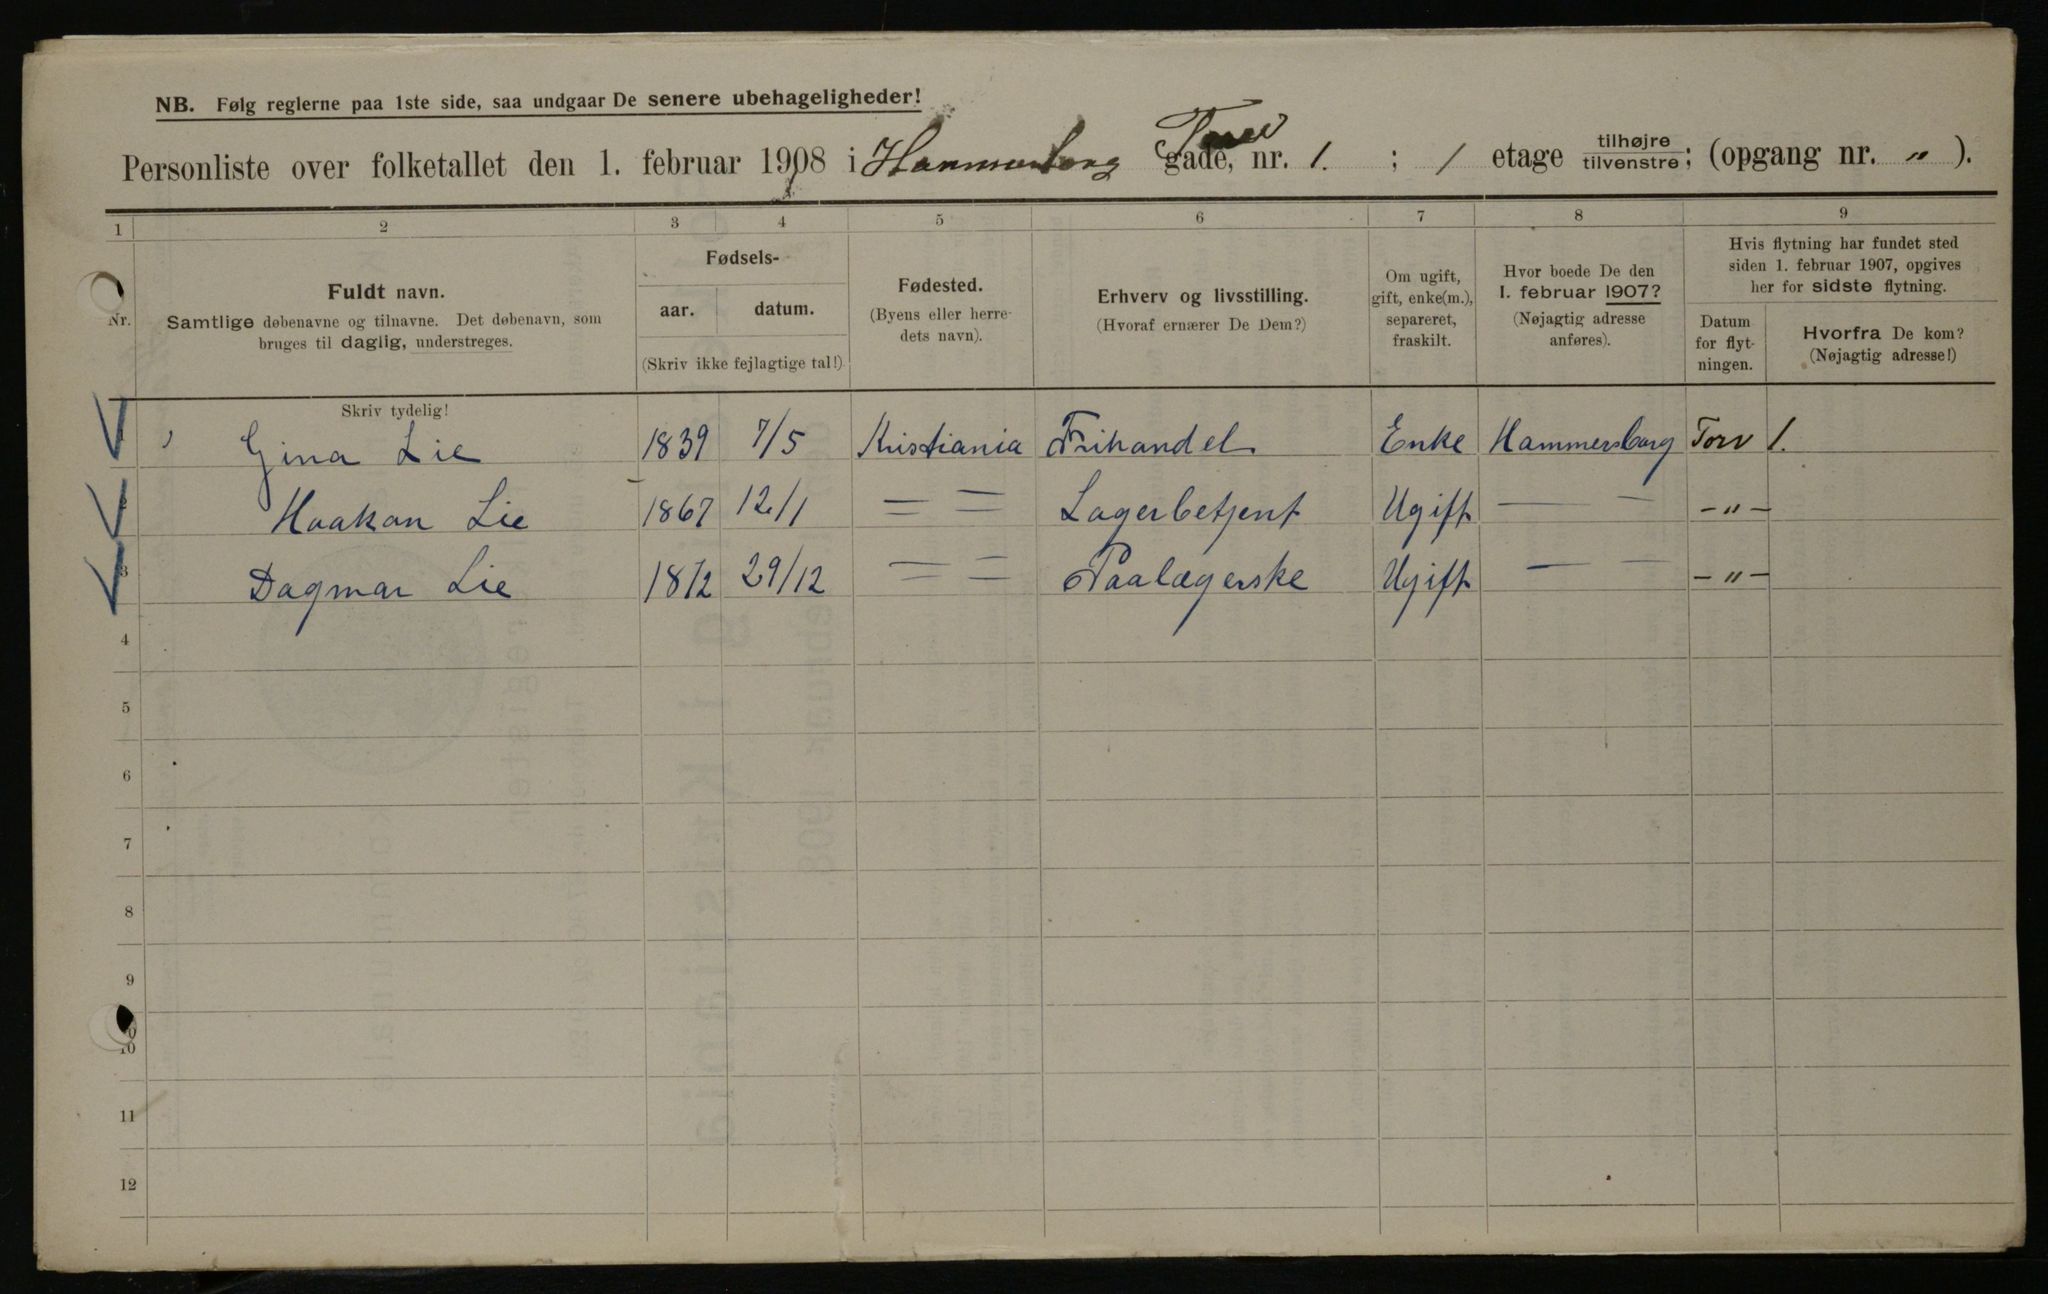 NB. Følg reglerne paa 1ste side, saa undgaar De senere ubehageligheder!
Torv
Personliste over folketallet den 1. februar 1908 i Hammersborg gade, nr. 1. ; 1 etage tilhøjre tilvenstre; (opgang nr. " ).
1 2 3 4 5 6 7 8 9
Nr.
Fuldt navn.
Samtlige døbenavne og tilnavne. Det døbenavn, som
bruges til daglig, understreges.
Fødsels-
aar. datum.
(Skriv ikke fejlagtige tal!)
Fødested.
(Byens eller herre-
dets navn).
Erhverv og livsstilling.
(Hvoraf ernærer De Dem?)
Om ugift,
gift, enke(m.),
separeret,
fraskilt.
Hvor boede De den
1. februar 1907?
(Nøjagtig adresse
anføres).
Hvis flytning har fundet sted
siden 1. februar 1907, opgives
her for sidste flytning.
Datum
for flyt-
ningen.
Hvorfra De kom?
(Nøjagtig adresse!)
Skriv tydelig!
Gina Lie 1839 7/5 Kristiania Frihandel Enke Hammersborg Torv 1.
Haakon Lie 1867 12/1 = = Lagerbetjent Ugift — — - " -
3 Dagmar Lie 1872 29/12 = = Paalægerske Ugift — — - " -
4
5
6
7
8
9
10
11
12